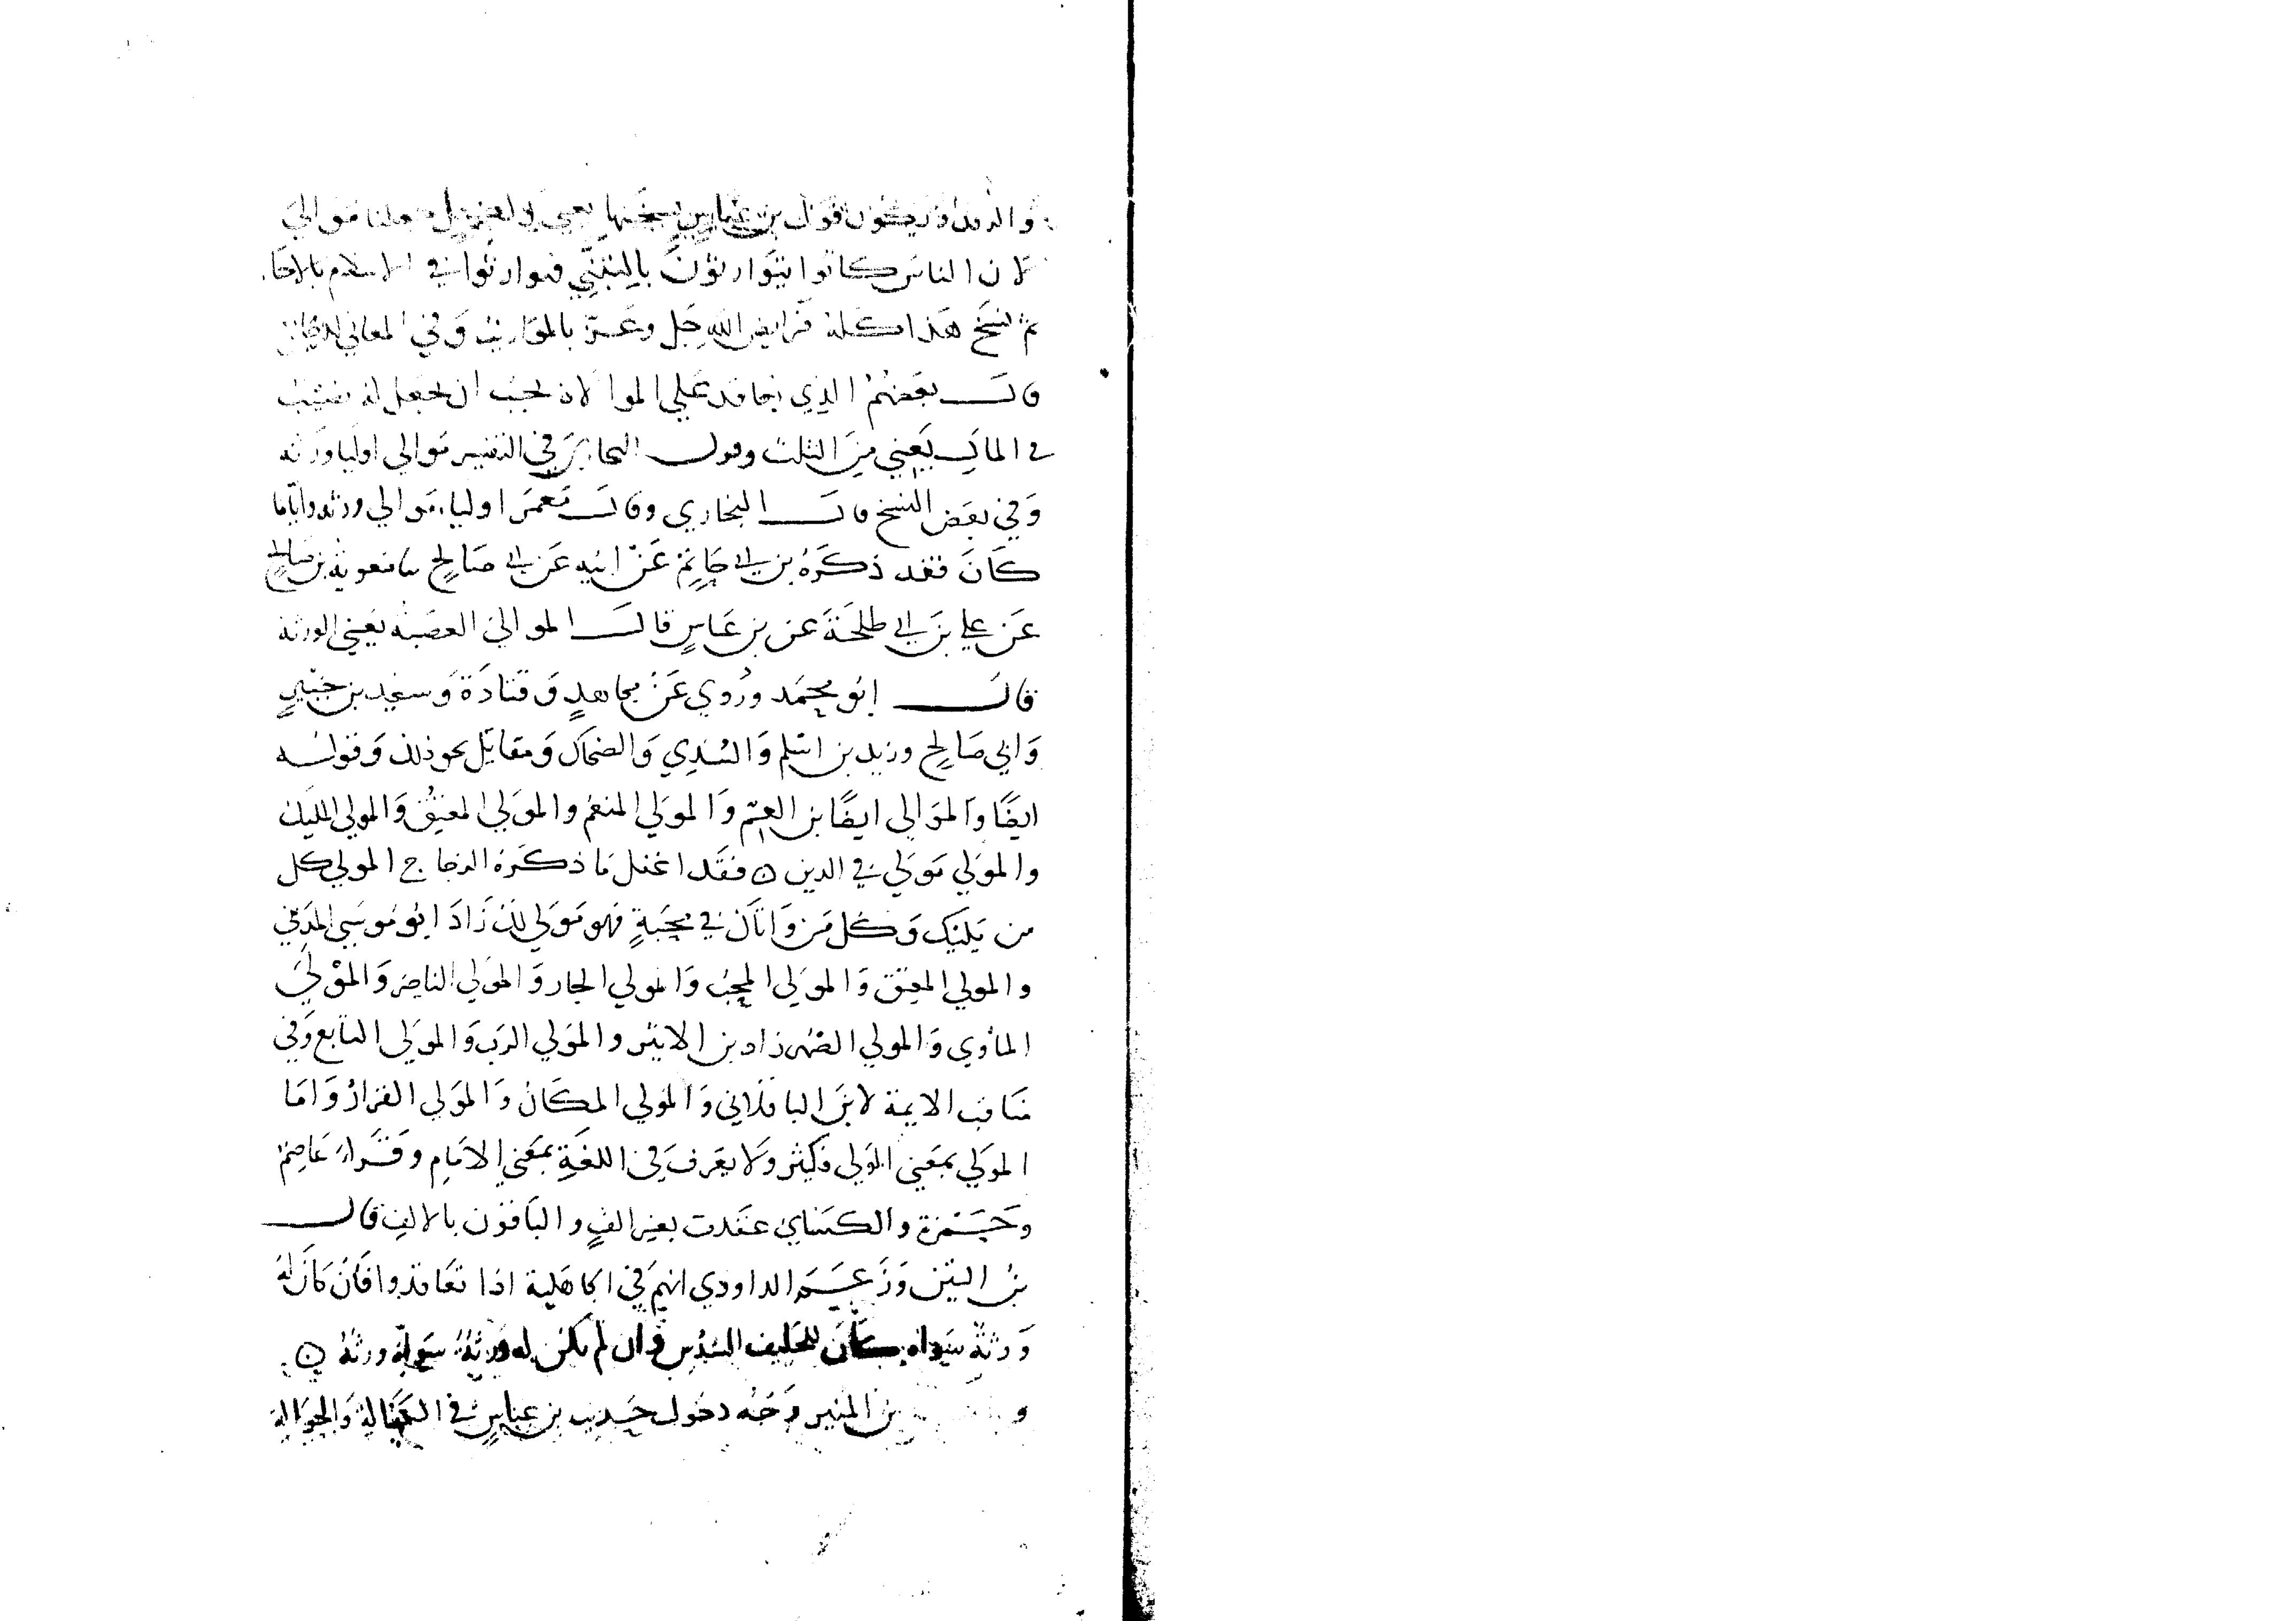 والذين فيكون قول بن عباس نسختها يعني ولكل جعلنا موالي
لان الناس كانوا يتوارثون بالتبني فتوارثوا في الاسلام بالاخا
ثم نسخ هذا كله فرايض الله جل وعز بالمواريث وفي المعاني للزجاج
قال بعضهم الذي تعاقد علي الموالاة يجب ان يجعل له نصيب
في المال يعني من الثلث وقول البخاري في التفسير موالي اوليا ورثه
وفي بعض النسخ قال البخاري وقال معمر اولياء موالي ورثه وايا ما
كان فقد ذكره بن ابي حاتم عن ابيه عن ابي صالح سا معوية بن صالح
عن علي بن ابي طلحة عن بن عباس قال الموالي العصبه يعني الورثه
قال ابو محمد وروي عن مجاهد وقتادة وسعيد بن جبير
وابي صالح وزيد بن اسلم والسدي والضحاك ومقاتل نحو ذلك وقوله
ايضا والموالي ايضا بن العم والمولي المنعم والمولي المعتق والمولي المليك
والمولي مولي في الدين ه فقد اغفل ما ذكره الزجاج المولي كل
من يليك وكل من والاك في محبة فهو مولي لك زاد ابو موسي المديني
والمولي المعتق والمولي المحب والمولي الجار والمولي الناصر والمولي
الماوي والمولي الصهر زاد بن الاثير والمولي الرب والمولي التابع وفي
مناقب الايمة لابن الباقلاني والمولي المكان والمولي القرار واما
المولي بمعني الولي فكثير ولا يعرف في اللغة بمعني الامام وقراء عاصم
وحمزة والكساي عقدت بغير الف والباقون بالالف قال
بن التين وزعم الداودي انهم في الجاهلية اذا تعاقدوا فان كان له
ورثة سواه كان للحليف السدس وان لم يكن له ورثة سواه ورثه ه
و بن المنير وجه دخول حديث بن عباس في الكفالة والحوالة